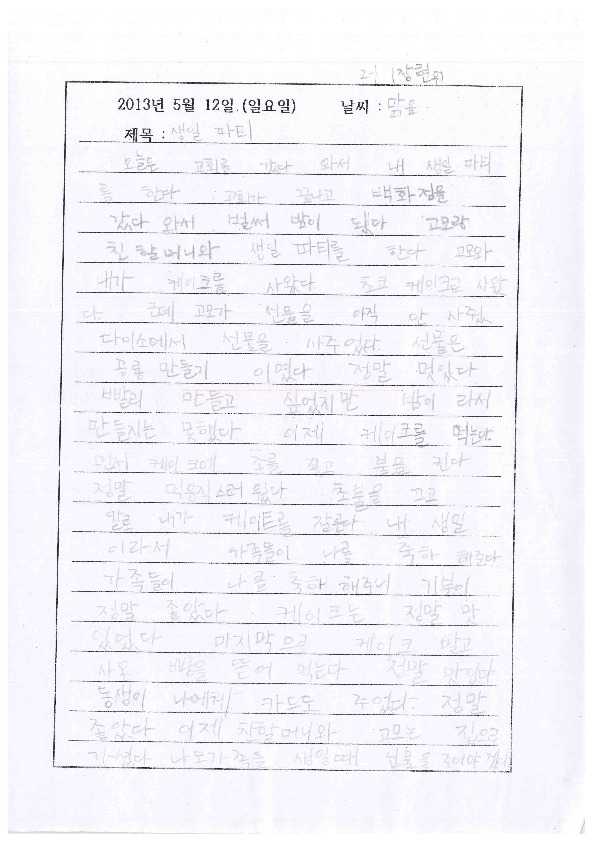 2-1 (장현우)
2013년 5월 12일.(일요일) 날씨 : 맑음.
제목 : 생일 파티
오늘도 교회를 갔다 와서 내 생일 파티
를 한다 교회가 끝나고 백화점을
갔다 와서 벌써 밤이 됬다 고모랑
친할머니와 생일 파티를 한다 고모와
내가 케이크를 사왔다 초코 케이크로 사왔
다. 근데 고모가 선물을 아직 안 사줬
다이소에서 선물을 사주었다 선물은
공룡 만들기 이였다 정말 멋있다
빨리 만들고 싶었지만 밤이 라서
만들지는 못했다 이제 케이크를 먹는다.
먼저 케이크에 초를 꽂고 불을 킨다
정말 먹음직스러웠다 촛불을 끄고
칼로 내가 케이크를 잘른다 내 생일
이라서 가족들이 나를 축하 해준다
가족들이 나를 축하 해주니 기분이
정말 좋았다 케이크는 정말 맛
있었다 마지막으로 케이크 말고
사온 빵을 뜯어 먹는다 정말 맛있다
동생이 나에게 카드도 주었다. 정말
좋았다 이제 친할머니와 고모는 집으로
가셨다 나도 가족들 생일때 선물을 주어야 겠다